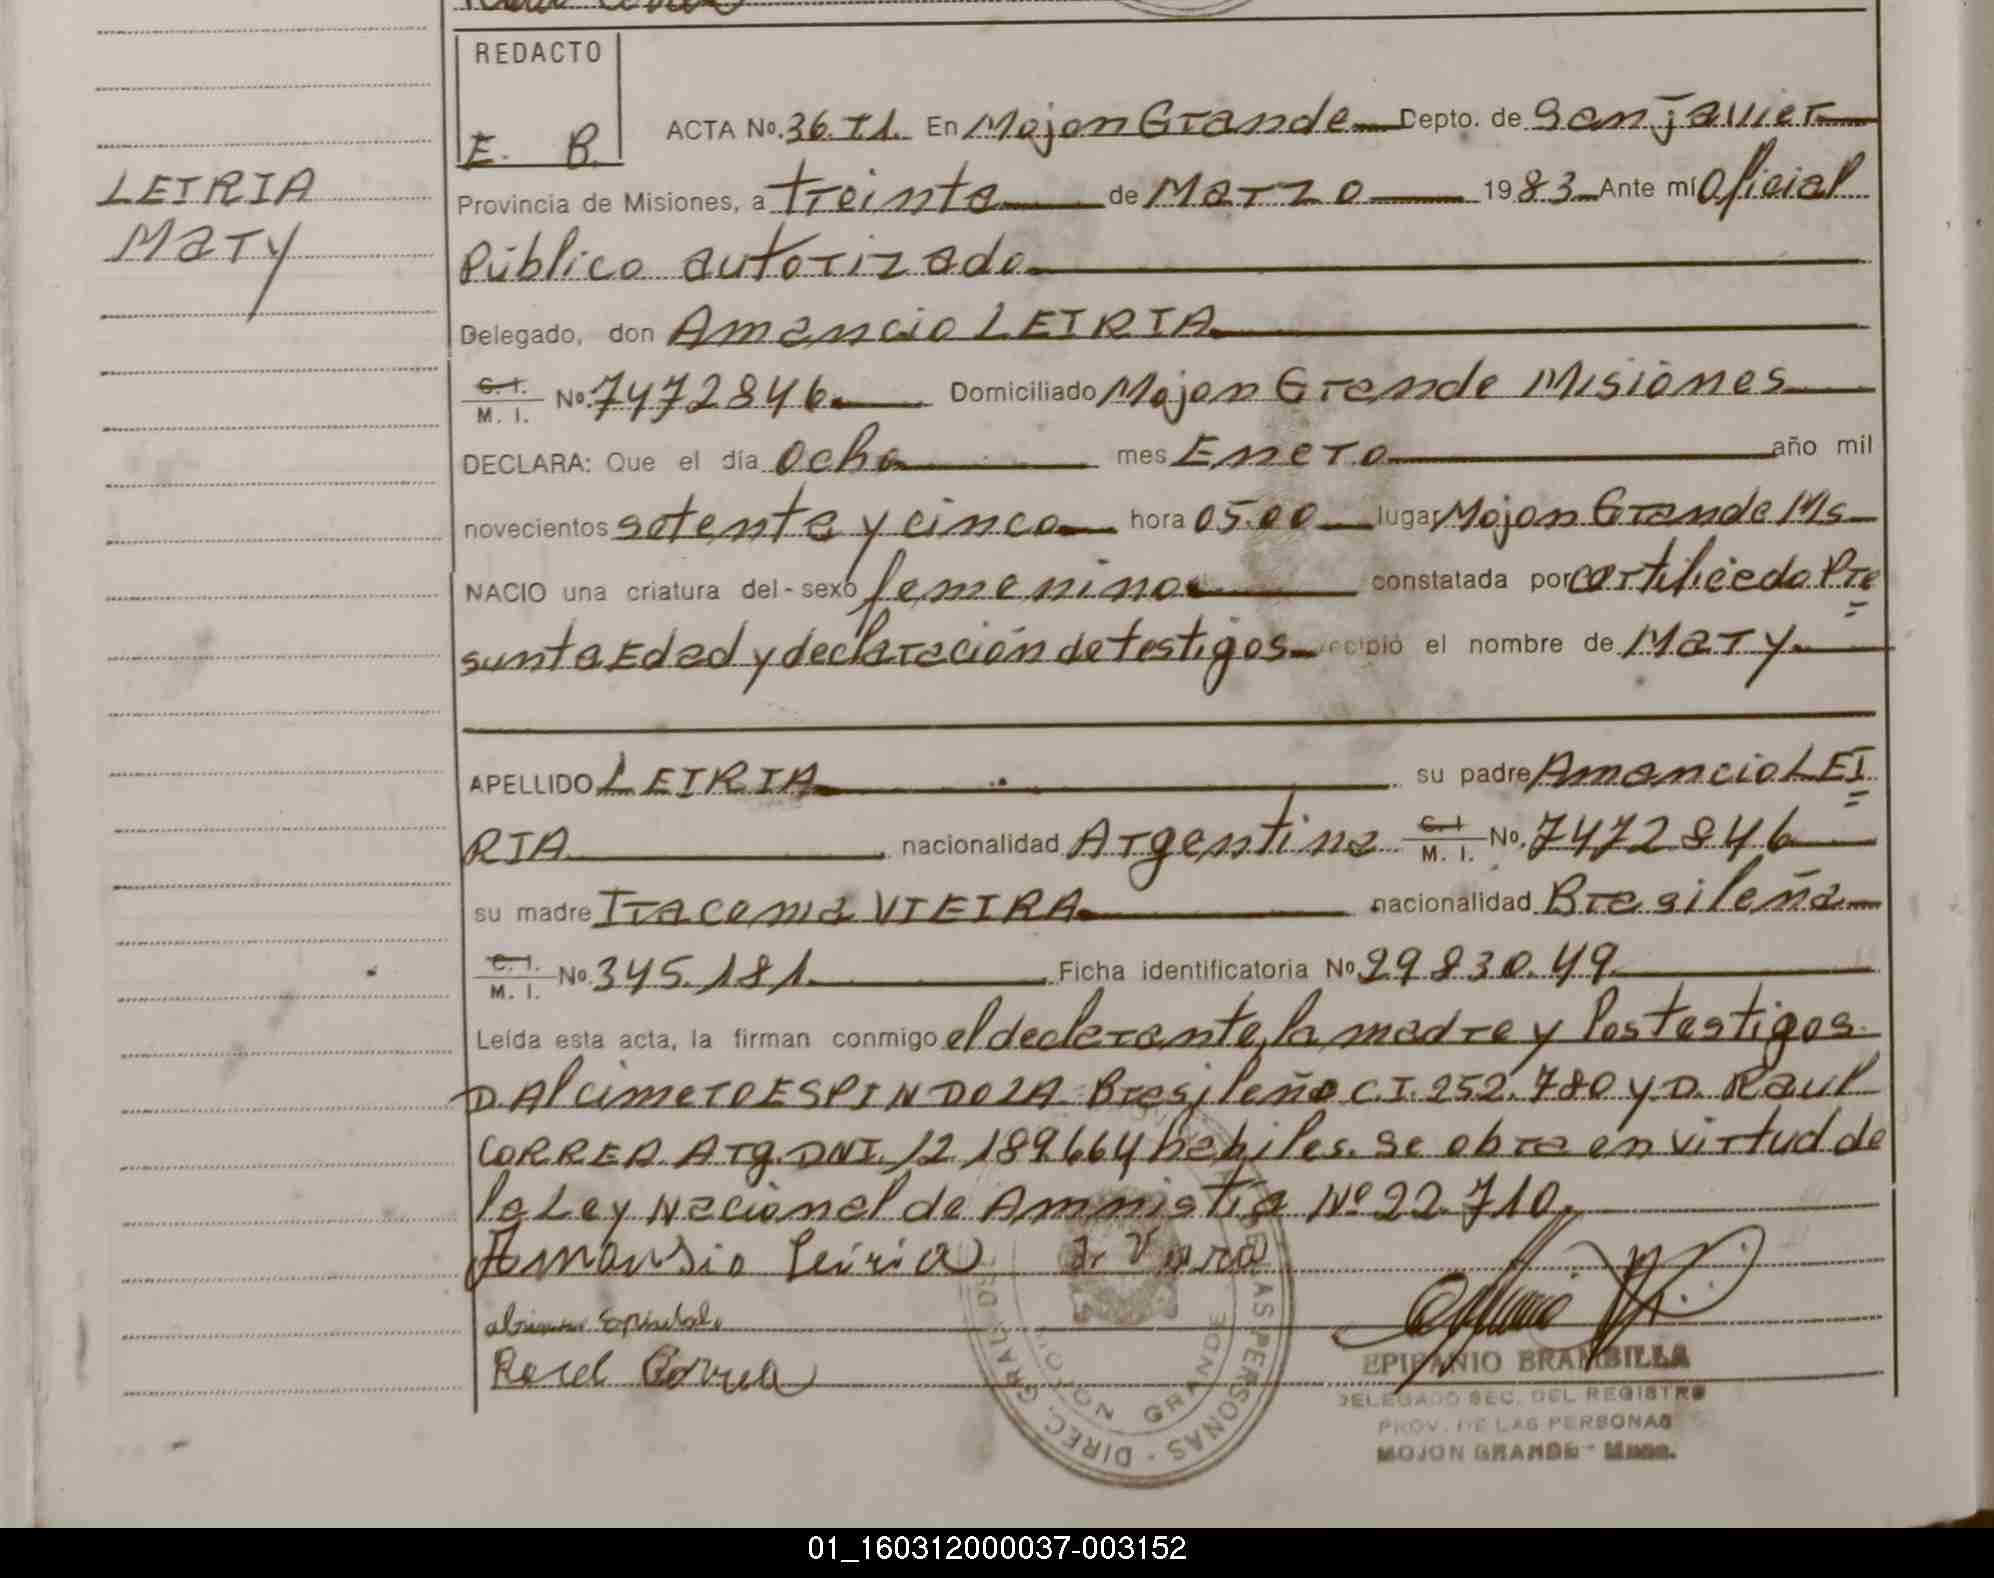 REDACTO
E. B.
ACTA No. 36. T1. En Mojon Grande Depto. de San Javier
LEIRIA
MARY
Provincia de Misiones, a treinta de Marzo 1983 Ante mí Oficial
Público autorizado
Delegado, don Amancio LEIRIA
C. I.
M. I. No. 7472846 Domiciliado Mojon Grande Misiones
DECLARA: Que el día Ocho mes Enero año mil
novecientos setenta y cinco hora 05.00 lugar Mojon Grande Ms
NACIO una criatura del-sexo femenino constatada por certificado Pre
sunta Edad y declaración de testigos recibió el nombre de Mary
APELLIDO LEIRIA su padre Amancio LEI
RIA nacionalidad Argentina C. I. M. I. No. 7472846
su madre Iracema VIEIRA nacionalidad Brasileña
C. I.
M. I. No. 345.181 Ficha identificatoria No 29830.49
Leída esta acta, la firman conmigo el declarante, la madre y los testigos
D. Alcimero ESPINDOLA Brasileño C.I. 252.780 y D. Raul
CORREA Arg. DNI. 12.189664 habiles. Se obra en virtud de
la Ley Nacional de Amnistia Nº 22.710.
Amansio Leiria
Raul Correa
DIREC. GRAL. DE LAS PERSONAS
MOJON GRANDE
EPIFANIO BRAMBILLA
DELEGADO SEC. DEL REGISTRO
PROV. DE LAS PERSONAS
MOJON GRANDE - Mnes.
01_160312000037-003152